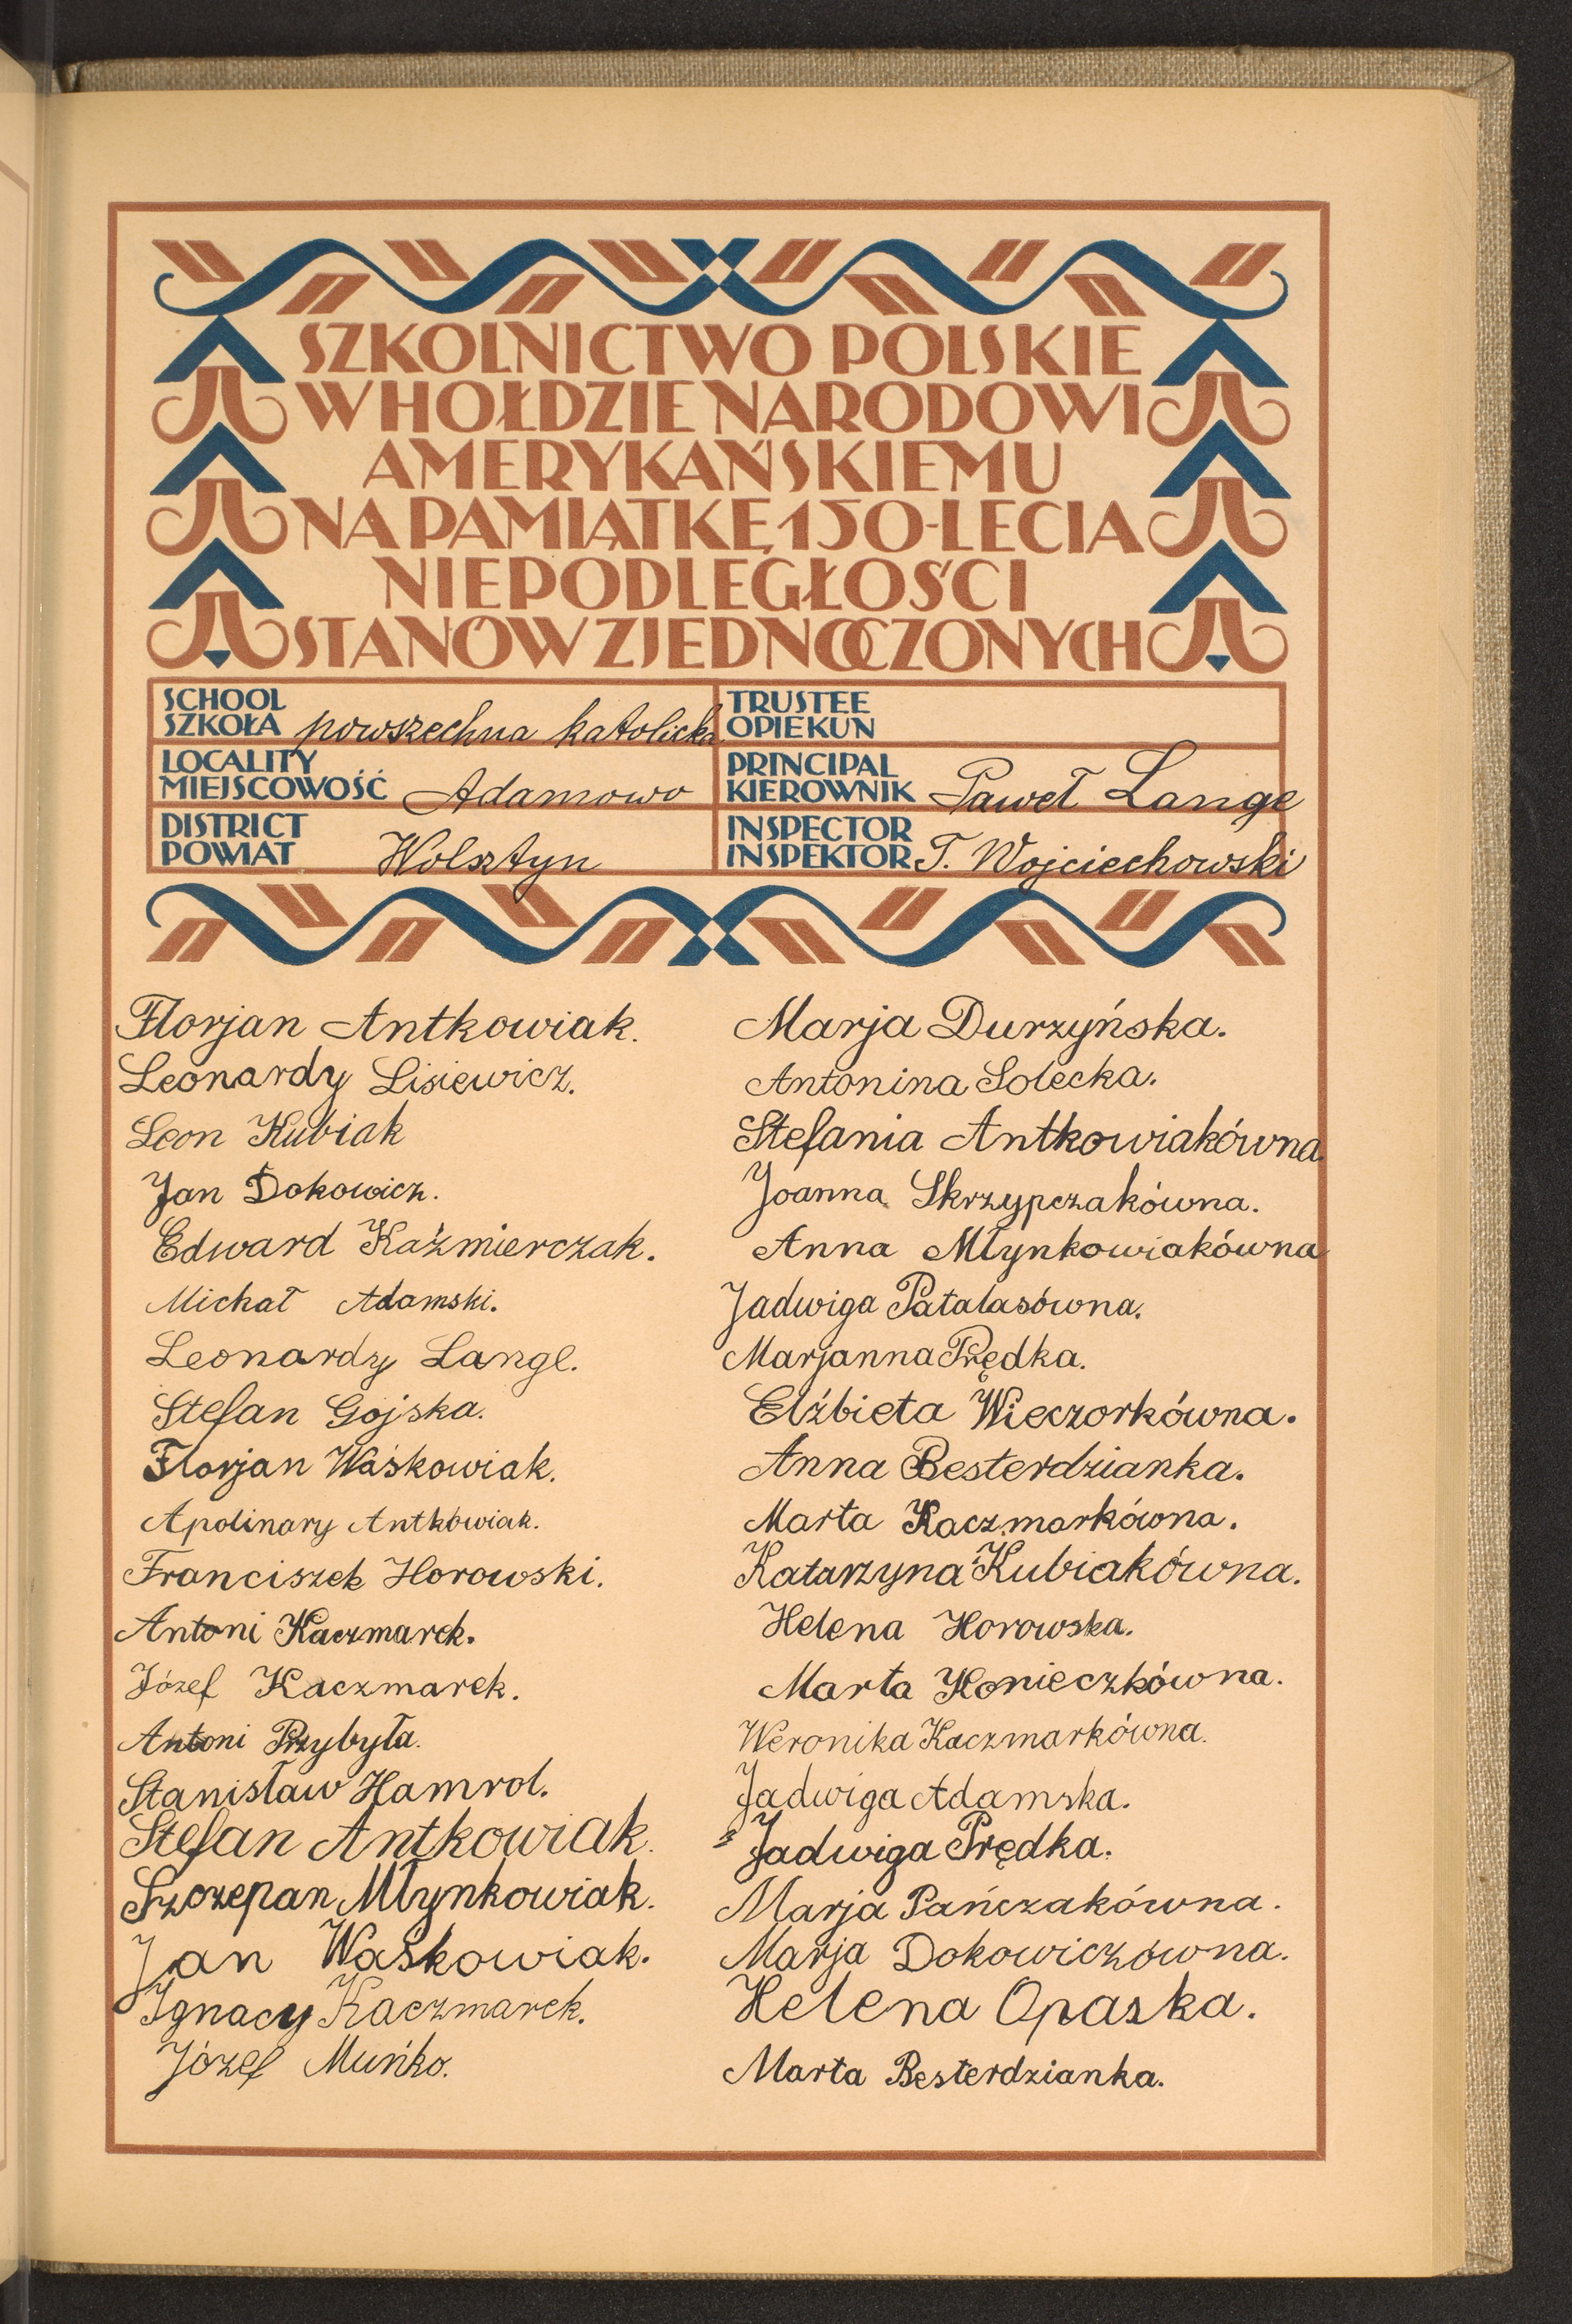 SZKOLNICTWO POLSKIE
W HOŁDZIE NARODOWI
AMERYKAŃSKIEMU
NA PAMIĄTKĘ 150-LECIA
NIEPODLEGŁOŚCI
STANÓW ZJEDNOCZONYCH
SCHOOL
SZKOŁA powszechna katolicka
TRUSTEE
OPIEKUN
LOCALITY
MIEJSCOWOŚĆ Adamowo
PRINCIPAL
KIEROWNIK Paweł Lange
DISTRICT
POWIAT Wolsztyn
INSPECTOR
INSPEKTOR T. Wojciechowski
Florjan Antkowiak.
Leonardy Lisiewicz.
Leon Kubiak
Jan Dokowicz.
Edward Kaźmierczak.
Michał Adamski.
Leonardy Lange.
Stefan Gojska.
Florjan Waśkowiak.
Apolinary Antkowiak.
Franciszek Horowski.
Antoni Kaczmarek.
Józef Kaczmarek.
Antoni Przybyła.
Stanisław Hamrol.
Stefan Antkowiak.
Szczepan Młynkowiak.
Jan Waśkowiak.
Ignacy Kaczmarek.
Józef Muńko.
Marja Durzyńska.
Antonina Solecka.
Stefania Antkowiakówna.
Joanna Skrzypczakówna.
Anna Młynkowiakówna
Jadwiga Patalasówna.
Marjanna Prędka.
Elżbieta Wieczorkówna.
Anna Besterdzianka.
Marta Kaczmarkówna.
Katarzyna Kubiakówna.
Helena Horowska.
Marta Konieczkówna.
Weronika Kaczmarkówna.
Jadwiga Adamska.
Jadwiga Prędka.
Marja Pańczakówna.
Marja Dokowiczówna.
Helena Opaska.
Marta Besterdzianka.